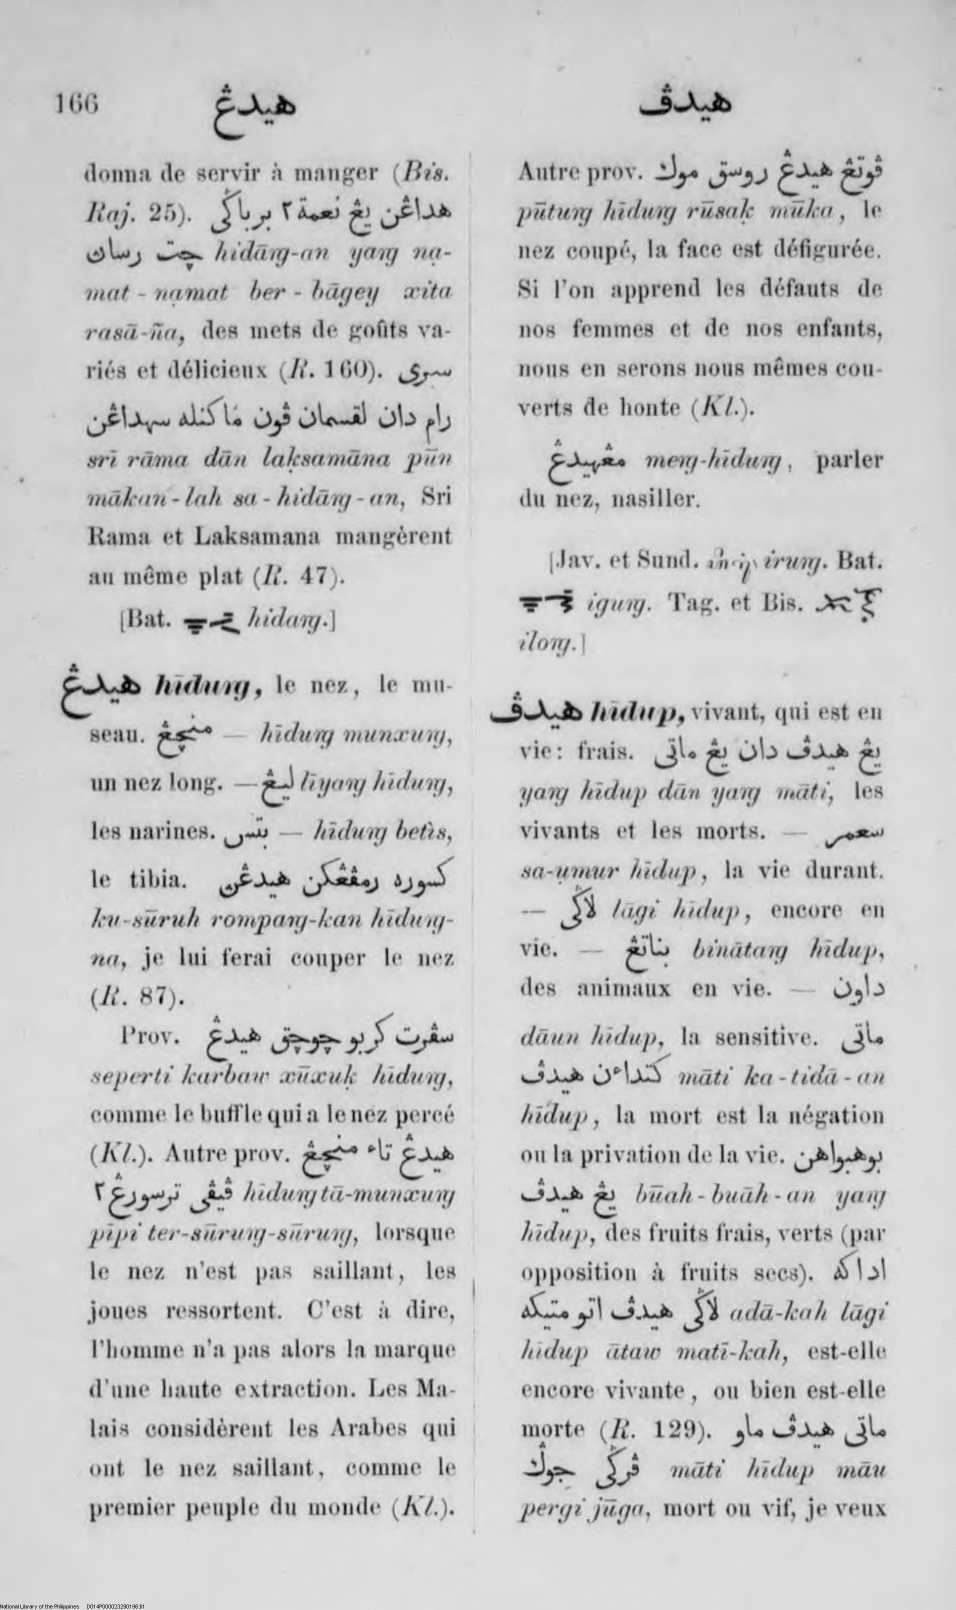 166
هيدڠ
هيدڤ
donna de servir à manger (Bis.
Raj. 25). هداڠن يڠ نعمة٢ برباݢي
چت رساڽ hidāng-an yang nạ-
mat-nạmat ber-bāgey xita
rasā-ña, des mets de goûts va-
riés et délicieux (R. 160). سري
رام دان لقسمان ڤون ماكنله سهداڠن
srī rāma dān laḳsamāna pūn
mākan-lah sa-hidāng-an, Sri
Rama et Laksamana mangèrent
au même plat (R. 47).
[Bat. hidang.]
هيدڠ hīdung, le nez, le mu-
seau. منچڠ — hīdung munxung,
un nez long. — ليڠ līyang hīdung,
les narines. بتس — hīdung betis,
le tibia. كسوره رمڤڠكن هيدڠن
ku-sūruh rompang-kan hīdung-
na, je lui ferai couper le nez
(R. 87).
Prov. سڤرت كربو چوچق هيدڠ
seperti karbaw xūxuḳ hīdung,
comme le buffle qui a le nez percé
(Kl.). Autre prov. هيدڠ تاء منچڠ
ڤيڤي ترسورڠ٢ hīdung tā-munxung
pīpi ter-sūrung-sūrung, lorsque
le nez n'est pas saillant, les
joues ressortent. C'est à dire,
l'homme n'a pas alors la marque
d'une haute extraction. Les Ma-
lais considèrent les Arabes qui
ont le nez saillant, comme le
premier peuple du monde (Kl.).
Autre prov. ڤوتڠ هيدڠ روسق موك
pūtung hīdung rūsaḳ mūka, le
nez coupé, la face est défigurée.
Si l'on apprend les défauts de
nos femmes et de nos enfants,
nous en serons nous mêmes cou-
verts de honte (Kl.).
مڠهيدڠ meng-hīdung, parler
du nez, nasiller.
[Jav. et Sund. irung. Bat.
igung. Tag. et Bis.
ilong.]
هيدڤ hīdup, vivant, qui est en
vie: frais. يڠ هيدڤ دان يڠ ماتي
yang hīdup dān yang māti, les
vivants et les morts. — سعمر
sa-ụmur hīdup, la vie durant.
— لاݢي lāgi hīdup, encore en
vie. — بناتڠ binātang hīdup,
des animaux en vie. — داون
dāun hīdup, la sensitive. ماتي
كتداءن هيدڤ māti ka-tidā-an
hīdup, la mort est la négation
ou la privation de la vie. بوهبواهن
يڠ هيدڤ būah-buāh-an yang
hīdup, des fruits frais, verts (par
opposition à fruits secs). اداكه
لاݢي هيدڤ اتو متيكه adā-kah lāgi
hīdup ātaw matī-kah, est-elle
encore vivante, ou bien est-elle
morte (R. 129). ماتي هيدڤ ماو
ڤرݢي جوݢ māti hīdup māu
pergi jūga, mort ou vif, je veux
National Library of the Philippines